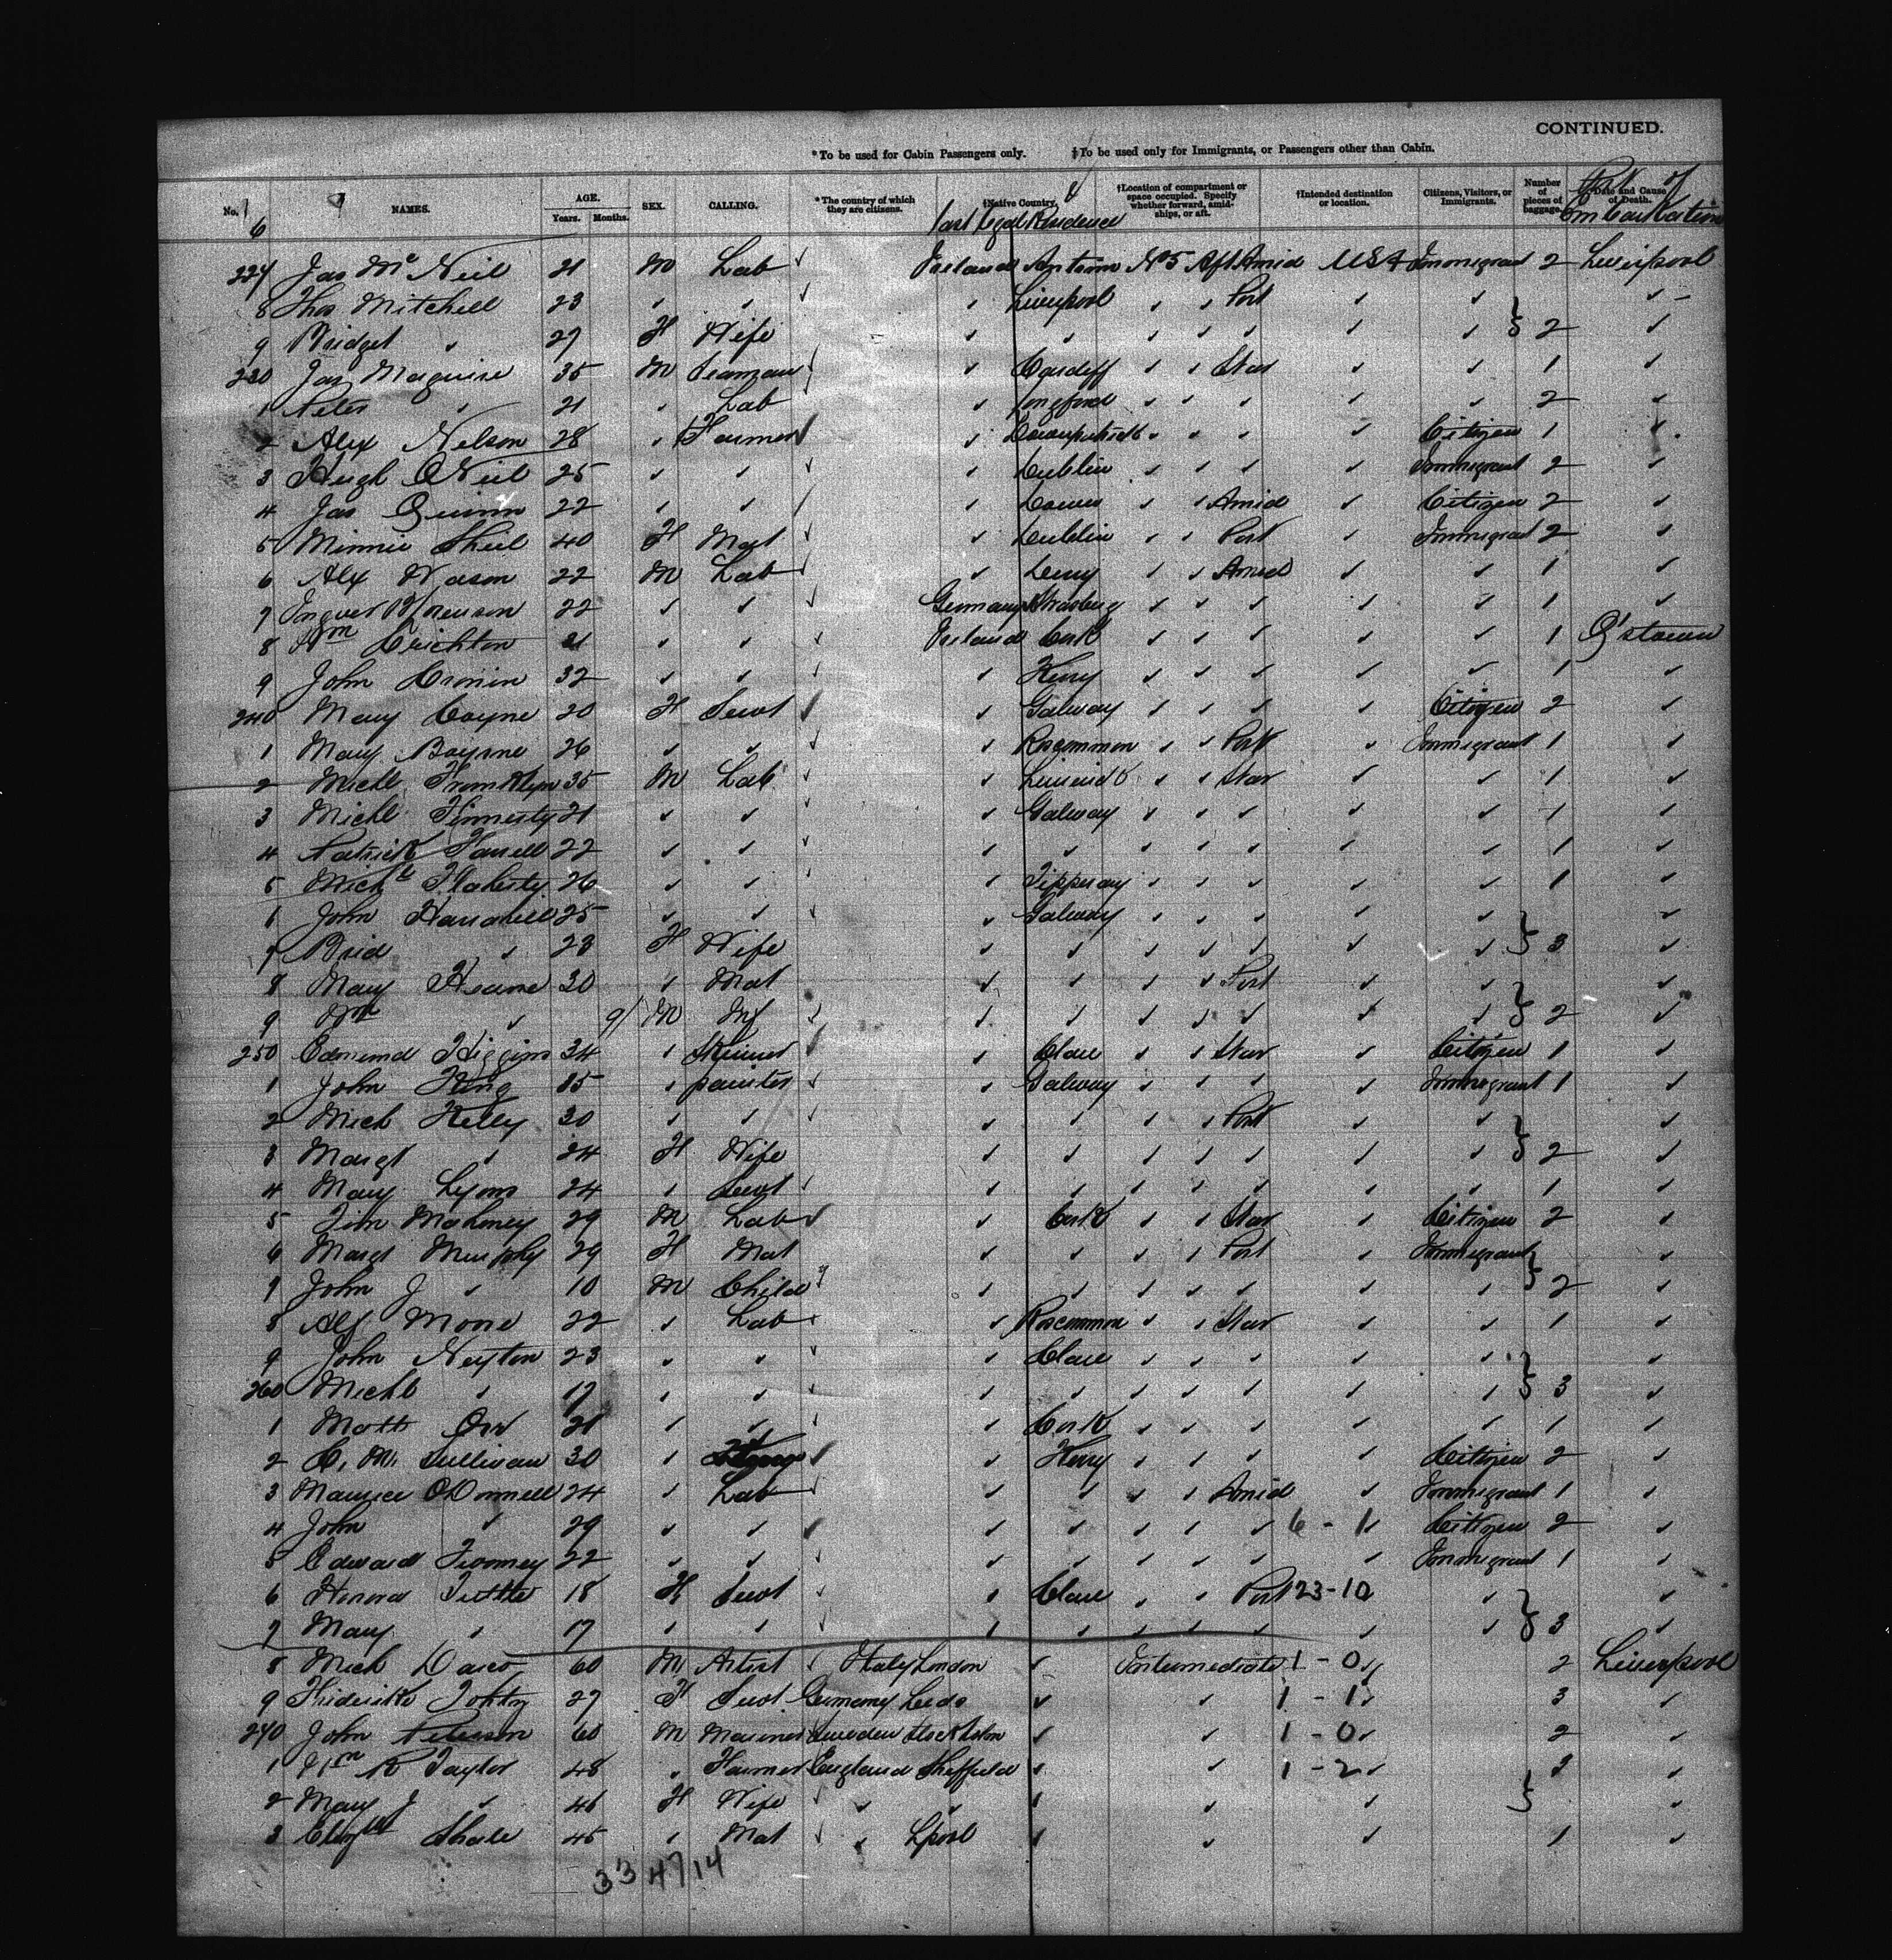 CONTINUED.
*To be used for Cabin Passengers only. ‡To be used only for Immigrants, or Passengers other than Cabin.
No. NAMES. AGE. Years. Months. SEX. CALLING. *The country of which they are citizens. †Native Country. †Location of compartment or space occupied. Specify whether forward, amidships, or aft. †Intended destination or location. Citizens, Visitors, or Immigrants. Number of pieces of baggage. Date and Cause of Death.
6 last legal Residence Port of Embarkation
227 Jas Mc Neil 21 M Lab ✓ Ireland Antrim No 5 Aft Amid USA Immigrant 2 Liverpool
8 Thos Mitchell 23 Liverpool Port
9 Bridget 27 F Wife 2
230 Jas Maguire 35 M Seaman Cardiff Star 1
1 Peter 21 Lab Longford 2
2 Alex Nelson 28 Farmer Citizen 1
3 Hugh ONeil 25 Dublin Immigrant 2
4 Jas Quinn 22 Down Amid Citizen 2
5 Minnie Shiel 40 F Mat Dublin Port Immigrant 2
6 Alex Wason 22 M Lab Derry Amid 1
7 22 Germany 1
8 Wm Crichton 21 Ireland Cork 1 Q'stown
9 John Cronin 32 Kerry 1
240 Mary Coyne 20 F Servt Galway Citizen 2
1 Mary 26 Roscommon Port Immigrant 1
2 Michl Franklyn 35 M Lab Limerick Star 1
3 Michl Finnerty 21 Galway 1
4 Patrick Farrell 22 1
5 Michl Flaherty 26 Tipperary 1
6 John 25 Galway
7 Brid 23 F Wife 3
8 Mary Keane 30 Mat Port
9 Wm 9 M Inf 2
250 Edmund Higgins 34 Clare Star Citizen 1
1 John King 25 painter Galway Immigrant 1
2 Mich Kelly 30 Port
3 Margt 24 F Wife 2
4 Mary Lyons 24 Servt 1
5 Tim Mahoney 29 M Lab Cork Star Citizen 2
6 Margt Murphy 29 F Mat Port Immigrant
7 John J 10 M Child 2
8 Alf Moore 22 Lab Roscommon Star 1
9 John Neylon 23 Clare
260 Michl 17 3
1 Matt Orr 21 Cork 1
2 C. M. Sullivan 30 Kerry Citizen 2
3 Maurice ODonnell 24 Lab Amid Immigrant 1
4 John 29 6 - 1 Citizen 2
5 Edward Twomey 22 Immigrant 1
6 Honora Tuttle 18 F Servt Clare Port 23-10
7 Mary 17 3
8 Mich 60 M Artist Italy London Intermediate 1 - 0 2 Liverpool
9 27 F Servt Germany Leeds 1 - 1 3
270 John Peterson 60 M Mariner Sweden Stockholm 1 - 0 2
1 Wm R Taylor 48 Farmer England Sheffield 1 - 2 3
2 Mary J 46 F Wife
3 Elizth Shale 45 Mat Lpool 1
33 47 14